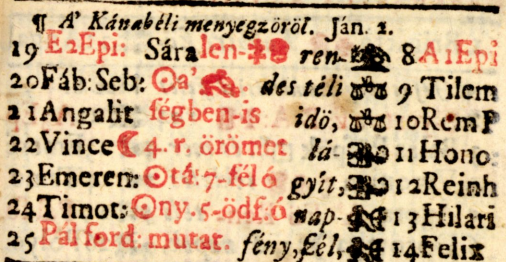 ¶ A' Kánabéli menyegzöröl. Ján. 2.
19 E2Epi: Sára len- ren- 8 A1Epi
20 Fáb: Seb: ☉a' des téli 9 Tilem
21 Angalit ségben-is idö, 10 Rem P
22 Vince ☾ 4. r. örömet lá- 11 Hono
23 Emeren: ☉tá: 7-fél ó gyit, 12 Reinh
24 Timot: ☉ny. 5-ödf: ó nap- 13 Hilari
25 Pál ford: mutat. fény, szél, 14 Felix